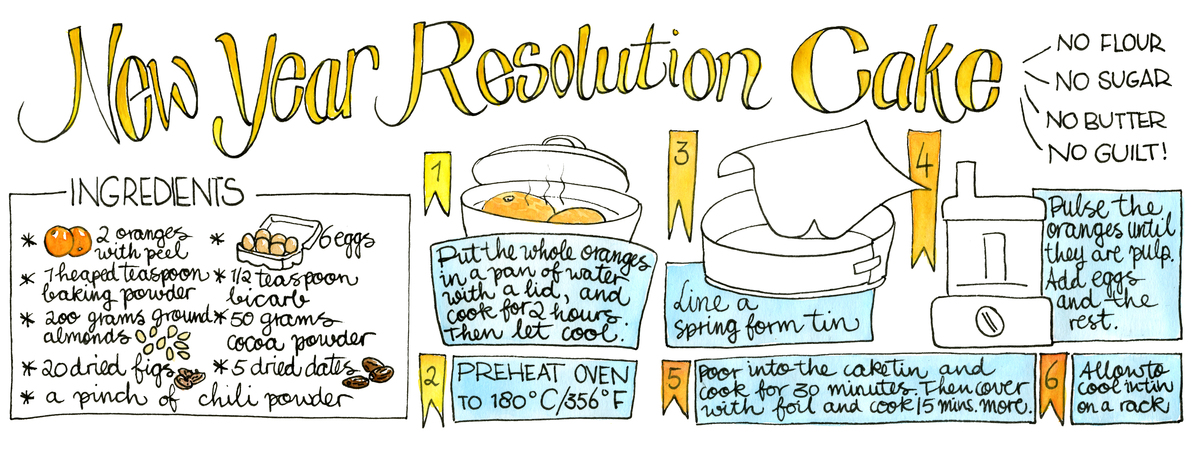 New Year Resolution Cake
NO FLOUR
NO SUGAR
NO BUTTER
NO GUILT!
INGREDIENTS
* 2 oranges
with peel
* 6 eggs
* 1 heaped teaspoon
baking powder
* 1/2 teaspoon
bicarb
* 200 grams ground
almonds
* 50 grams
cocoa powder
* 20 dried figs
* 5 dried dates
* a pinch of chili powder
1
Put the whole oranges
in a pan of water
with a lid, and
cook for 2 hours.
Then let cool.
2
PREHEAT OVEN
TO 180°C/356°F
3
Line a
spring form tin
4
Pulse the
oranges until
they are pulp.
Add eggs
and the
rest.
5
Poor into the caketin and
cook for 30 minutes. Then cover
with foil and cook 15 mins. more.
6
Allow to
cool in tin
on a rack